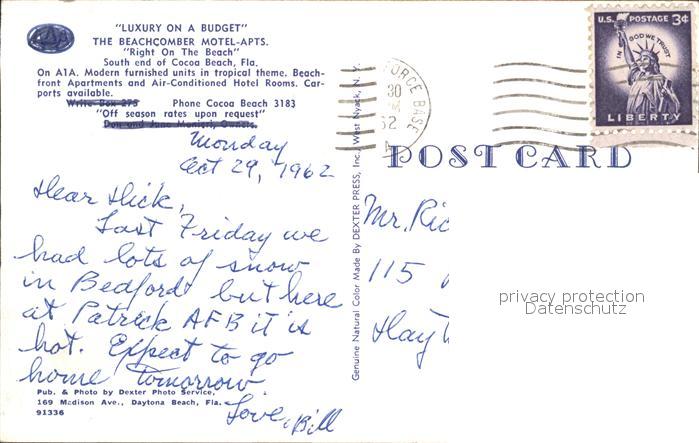 "LUXURY ON A BUDGET"
THE BEACHCOMBER MOTEL-APTS.
"Right On The Beach"
South end of Cocoa Beach, Fla.
On A1A. Modern furnished units in tropical theme. Beach-
front Apartments and Air-Conditioned Hotel Rooms. Car-
ports available.
Write Box 275 Phone Cocoa Beach 3183
"Off season rates upon request"
Don and June Monieri, Owners.
Monday
Oct 29, 1962
Dear Dick,
Last Friday we
had lots of snow
in Bedford but here
at Patrick AFB it is
hot. Expect to go
home tomorrow.
Love, Bill
Pub. & Photo by Dexter Photo Service,
169 Madison Ave., Daytona Beach, Fla.
91336
Genuine Natural Color Made By DEXTER PRESS, Inc., West Nyack, N. Y.
FORCE BASE
30
U.S. POSTAGE 3¢
IN GOD WE TRUST
LIBERTY
POST CARD
Mr. Ric
115
Dayt
privacy protection
Datenschutz